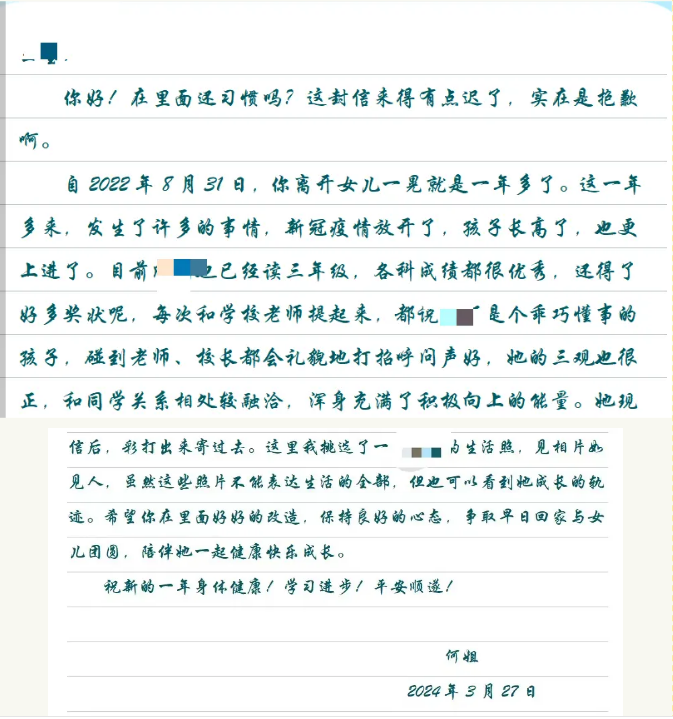 你好！在里面还习惯吗？这封信来得有点迟了，实在是抱歉
啊。
自 2022 年 8 月 31 日，你离开女儿一晃就是一年多了。这一年
多来，发生了许多的事情，新冠疫情放开了，孩子长高了，也更
上进了。目前 她已经读三年级，各科成绩都很优秀，还得了
好多奖状呢，每次和学校老师提起来，都说 是个乖巧懂事的
孩子，碰到老师、校长都会礼貌地打招呼问声好，她的三观也很
正，和同学关系相处较融洽，浑身充满了积极向上的能量。她现
信后，彩打出来寄过去。这里我挑选了一 的生活照，见相片如
见人，虽然这些照片不能表达生活的全部，但也可以看到她成长的轨
迹。希望你在里面好好的改造，保持良好的心态，争取早日回家与女
儿团圆，陪伴她一起健康快乐成长。
祝新的一年身体健康！学习进步！平安顺遂！
何姐
2024 年 3 月 27 日